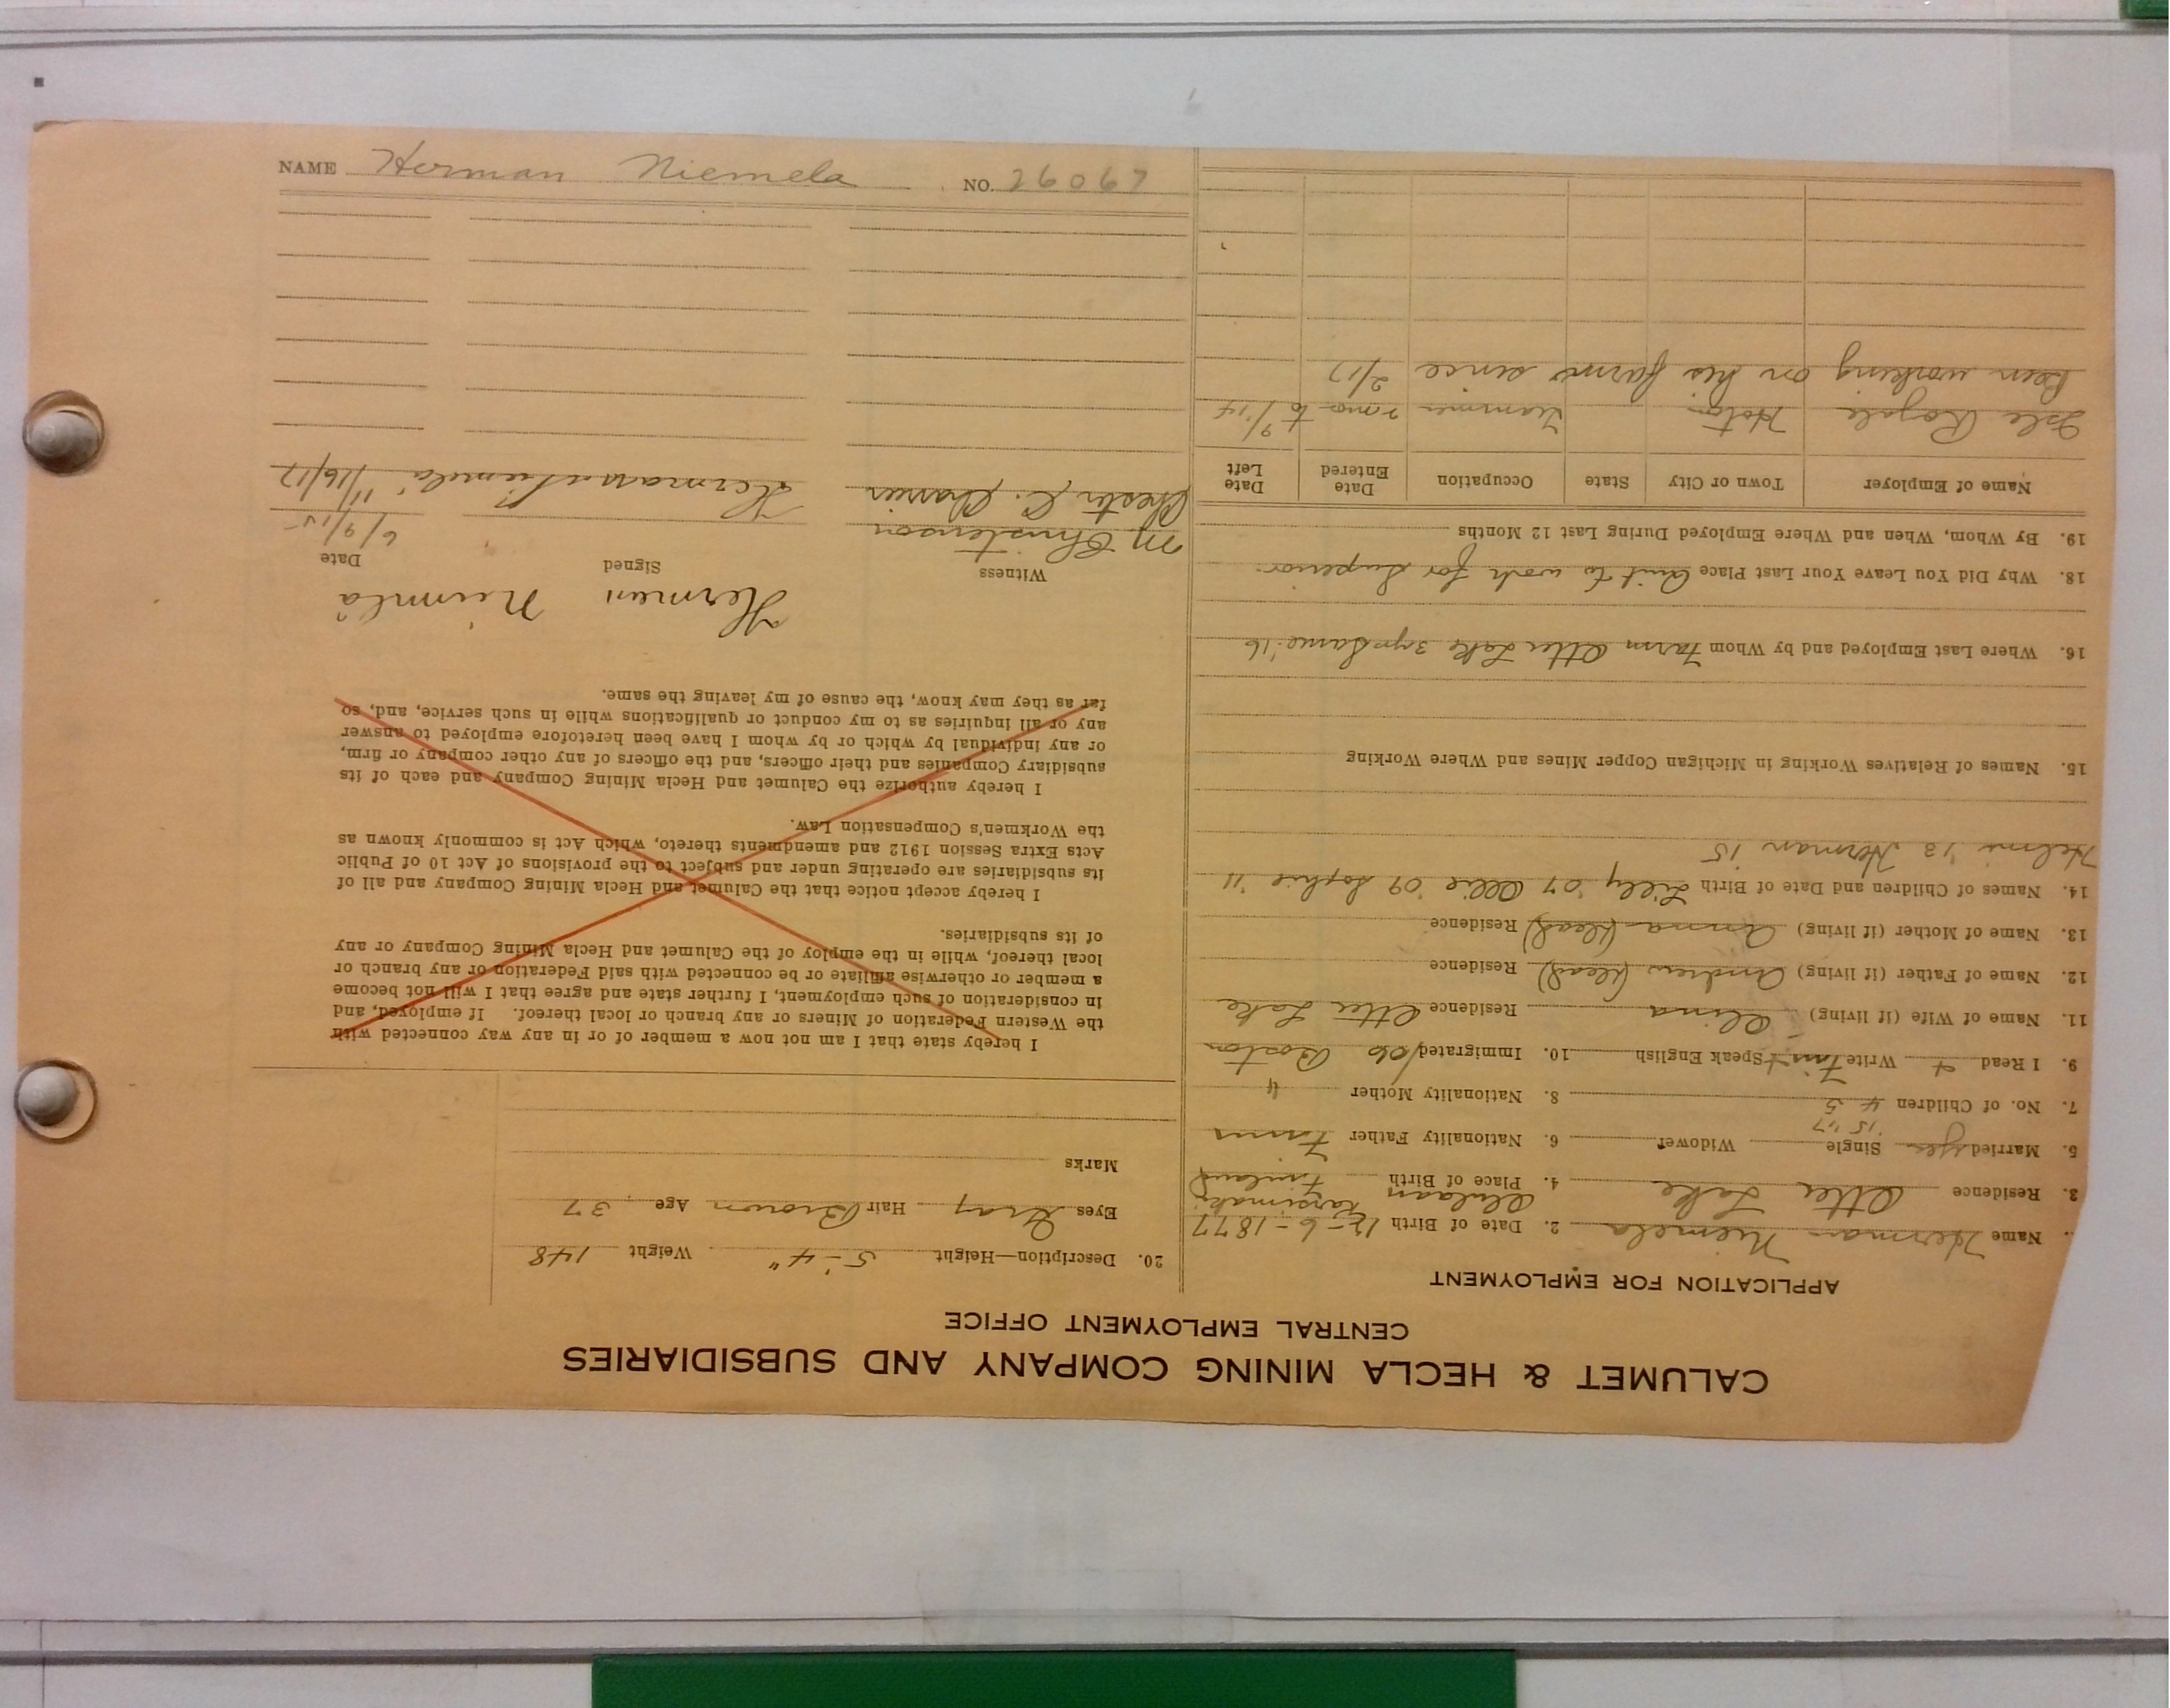 CALUMET & HECLA MINING COMPANY AND SUBSIDIARIES
CENTRAL EMPLOYMENT OFFICE
APPLICATION FOR EMPLOYMENT
. Name Herman Niemela 2. Date of Birth 12-6-1877
3. Residence Otter Lake 4. Place of Birth Finland
5. Married yes Single Widower 6. Nationality Father Finns
'15 '17
7. No. of Children 4 5 8. Nationality Mother "
9. I Read + Write Finn + Speak English 10. Immigrated /06 Boston
11. Name of Wife (if living) Olina Residence Otter Lake
12. Name of Father (if living) Andrew (dead) Residence
13. Name of Mother (if living) Anna (dead) Residence
14. Names of Children and Date of Birth Lilly '07 Ollie '09 Sophie '11
Helmi '13 Herman 15
15. Names of Relatives Working in Michigan Copper Mines and Where Working
16. Where Last Employed and by Whom Farm Otter Lake 3 yrs Same '16
18. Why Did You Leave Your Last Place Quit to work for Superior
19. By Whom, When and Where Employed During Last 12 Months
Name of Employer Town or City State Occupation Date Entered Date Left
Isle Royale Hotn Trammer 2 mo to 9/14
Been working on his farm since 2/17
20. Description—Height 5'-4" Weight 148
Eyes Gray Hair Brown Age 37
Marks
I hereby state that I am not now a member of or in any way connected with
the Western Federation of Miners or any branch or local thereof. If employed, and
in consideration of such employment, I further state and agree that I will not become
a member or otherwise affiliate or be connected with said Federation or any branch or
local thereof, while in the employ of the Calumet and Hecla Mining Company or any
of its subsidiaries.
I hereby accept notice that the Calumet and Hecla Mining Company and all of
its subsidiaries are operating under and subject to the provisions of Act 10 of Public
Acts Extra Session 1912 and amendments thereto, which Act is commonly known as
the Workmen's Compensation Law.
I hereby authorize the Calumet and Hecla Mining Company and each of its
subsidiary Companies and their officers, and the officers of any other company or firm,
or any individual by which or by whom I have been heretofore employed to answer
any or all inquiries as to my conduct or qualifications while in such service, and, so
far as they may know, the cause of my leaving the same.
Herman Niemela
Witness Signed Date
M Christenson 6/9/15
Chester C. Herman Niemela 11/16/17
NAME Herman Niemela NO. 26067